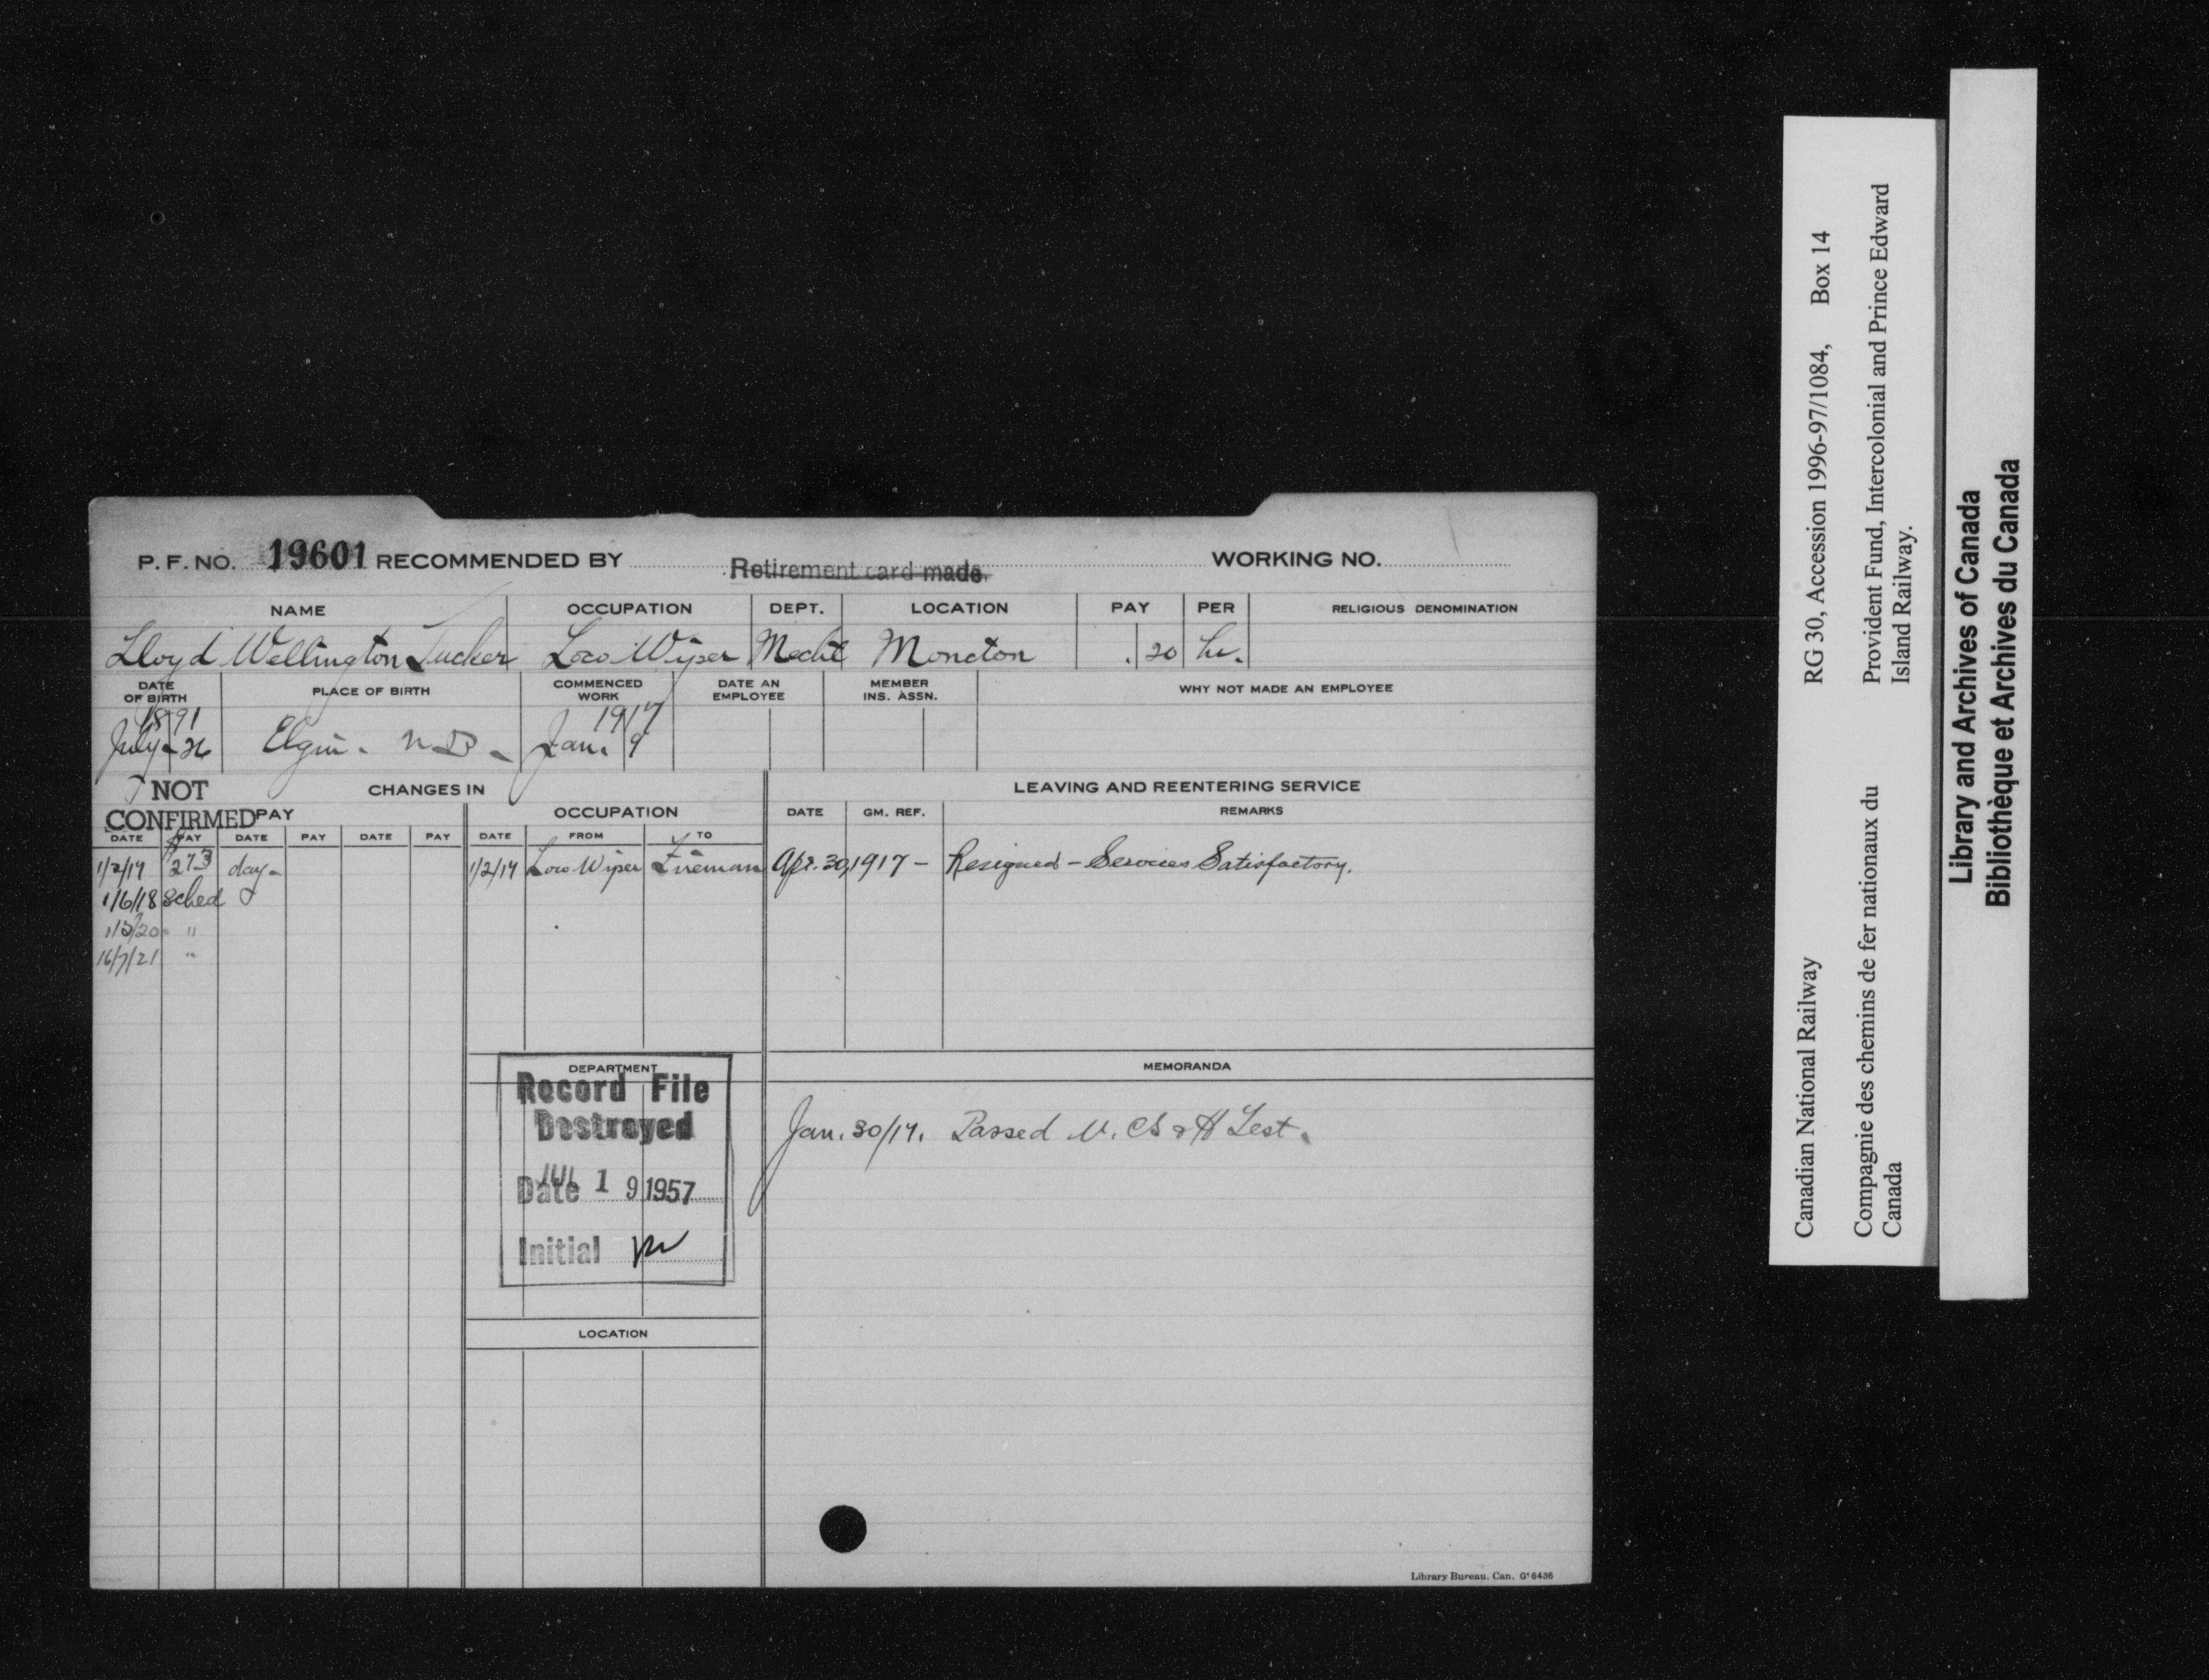 P. F. NO. 19601 RECOMMENDED BY Retirement card made. WORKING NO.
NAME OCCUPATION DEPT. LOCATION PAY PER RELIGIOUS DENOMINATION
Lloyd Wellington Tucker Loco Wiper Mechl Moncton .20 hr.
DATE OF BIRTH PLACE OF BIRTH COMMENCED WORK DATE AN EMPLOYEE MEMBER INS. ASSN. WHY NOT MADE AN EMPLOYEE
1891 1917
July - 26 Elgin - N.B. - Jan. 9
NOT CHANGES IN LEAVING AND REENTERING SERVICE
CONFIRMED PAY OCCUPATION DATE GM. REF. REMARKS
DATE PAY DATE PAY DATE PAY DATE FROM TO
1/2/17 $ 273 day - 1/2/17 Loco Wiper Fireman Apr. 30, 1917 - Resigned - Services Satisfactory.
1/6/18 Sched
/20 "
16/7/21 "
DEPARTMENT MEMORANDA
Record File
Destroyed
Jan. 30/17. Passed V. CS & H Test.
Date JUL 19 1957
Initial
LOCATION
Library Bureau. Can. G¹ 6436
Canadian National Railway RG 30, Accession 1996-97/1084, Box 14
Compagnie des chemins de fer nationaux du Provident Fund, Intercolonial and Prince Edward
Canada Island Railway.
Library and Archives of Canada
Bibliothèque et Archives du Canada